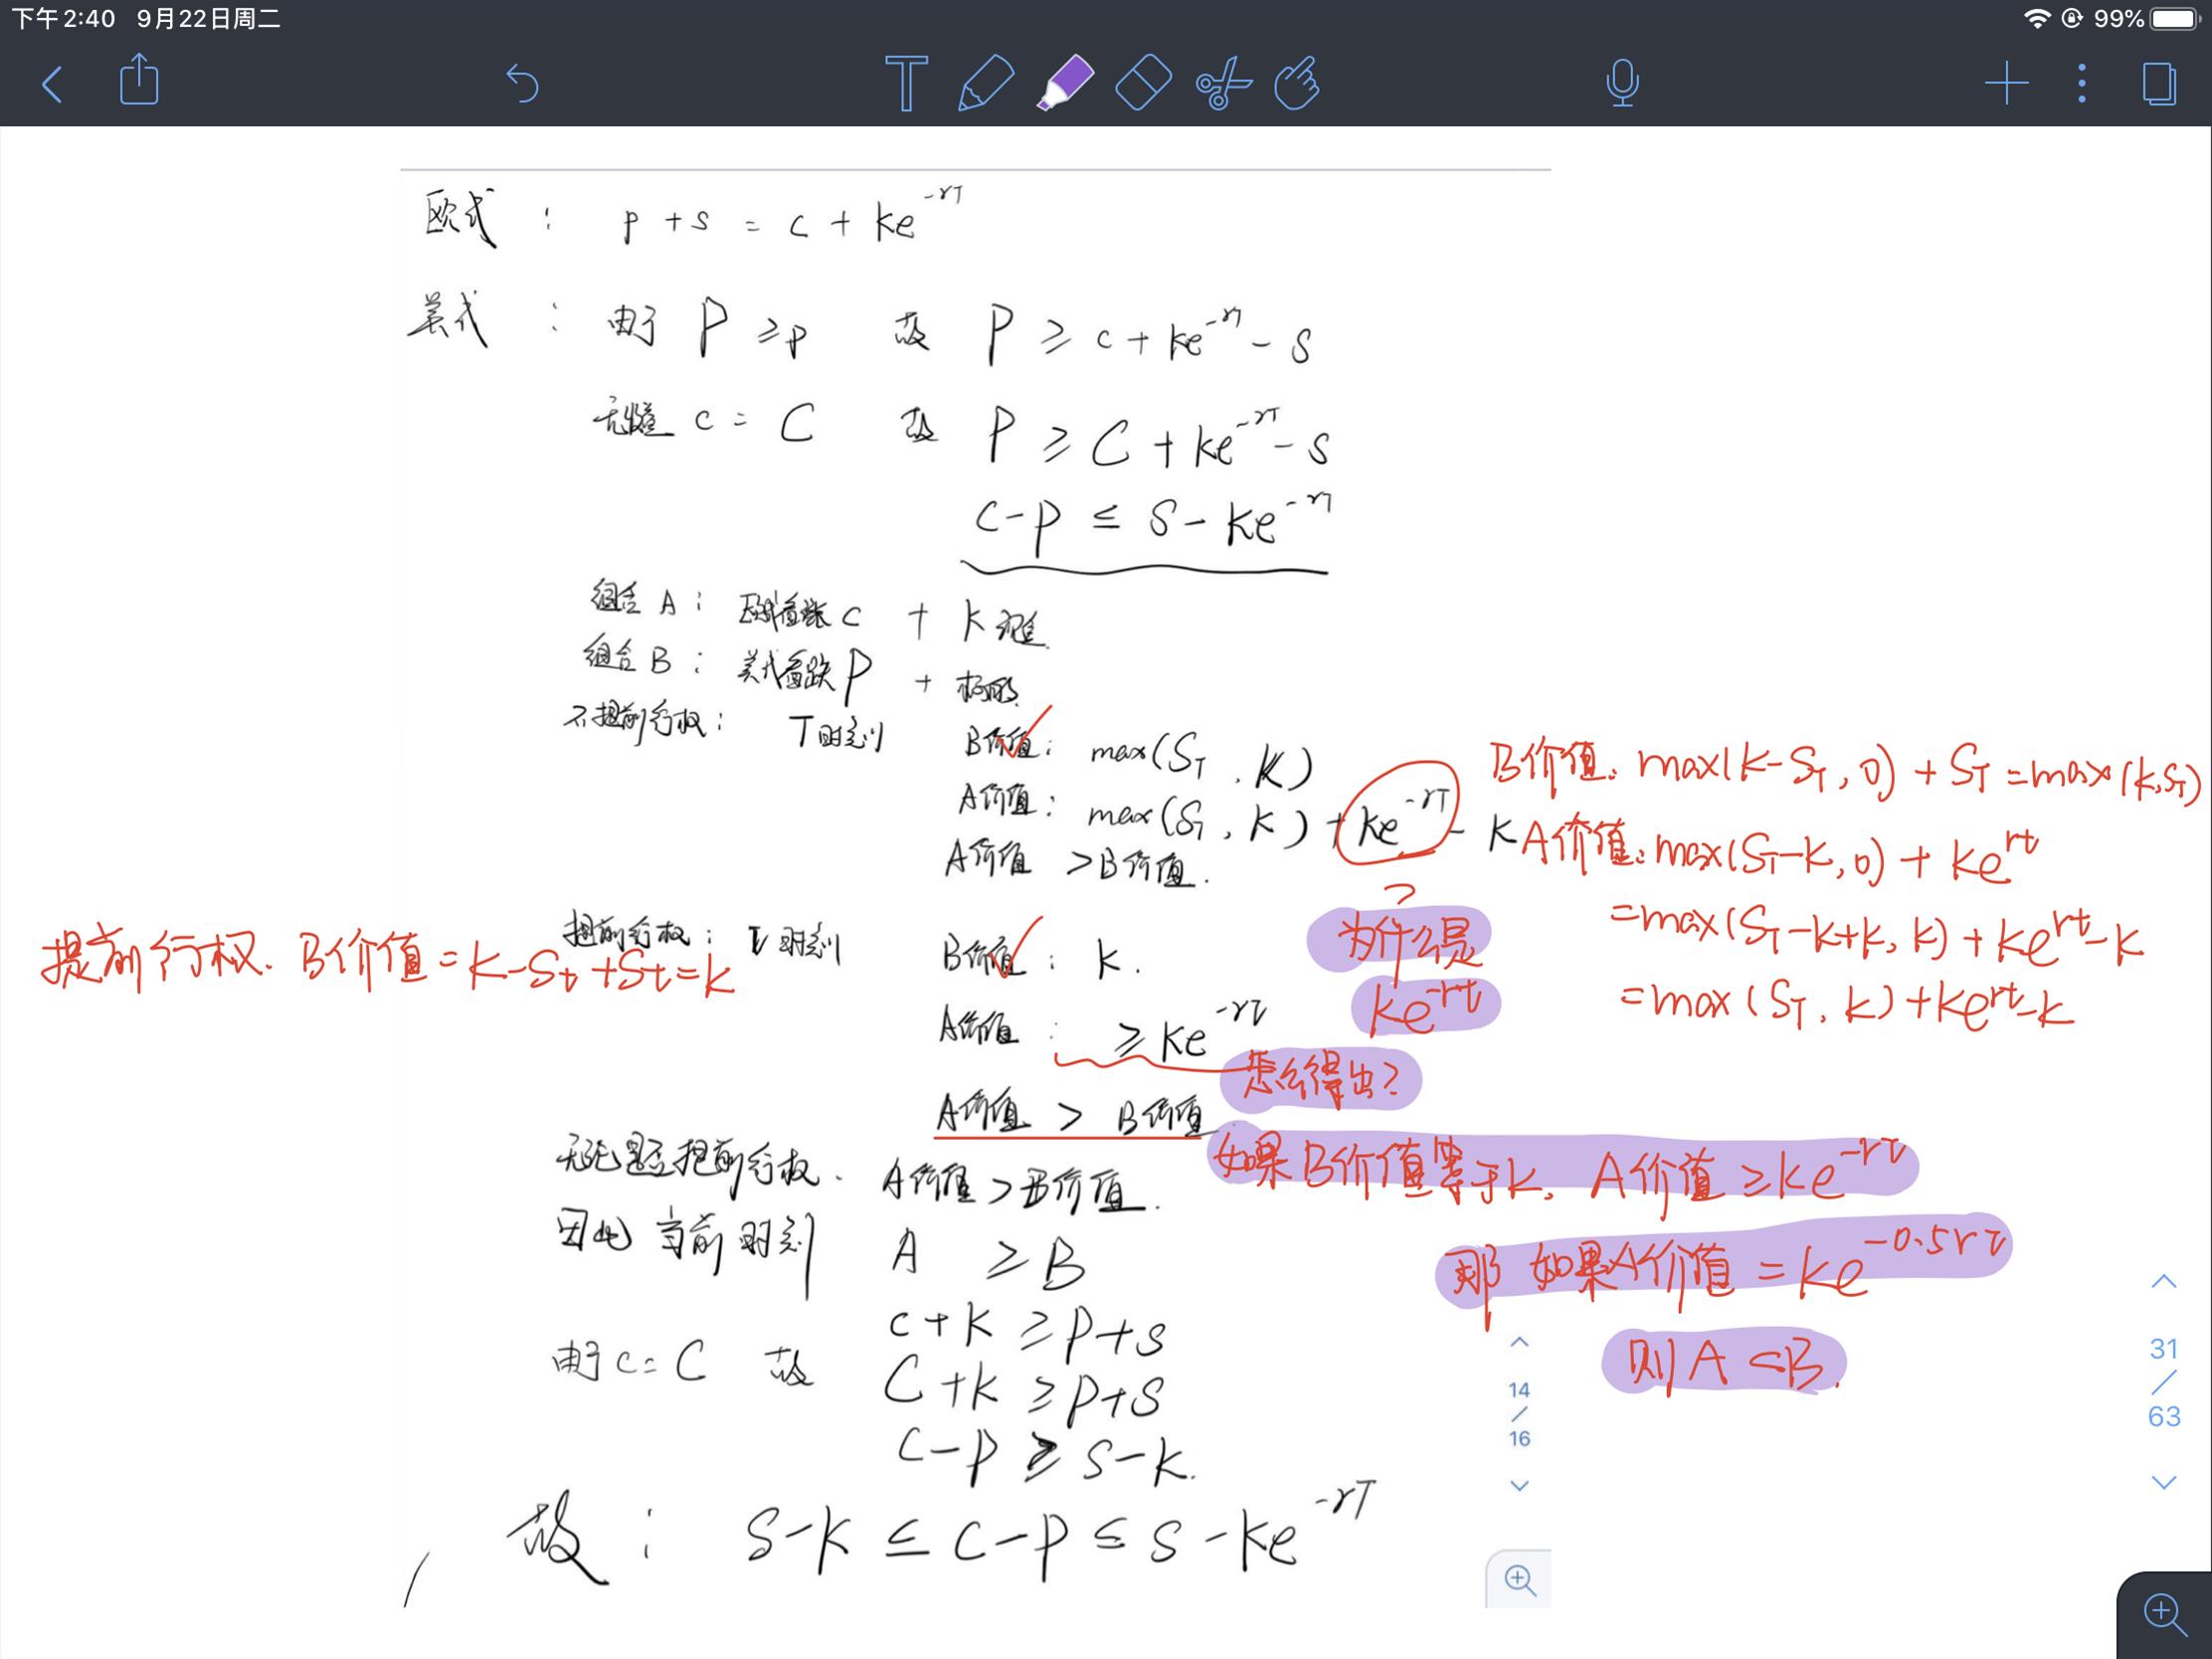 下午2:40 9月22日周二
99%
T
欧式 : p + s = c + ke^-rT
美式 : 由于 P ≥ p 故 P ≥ c + ke^-rT - S
无收益 c = C 故 P ≥ C + ke^-rT - S
C - P ≤ S - ke^-rT
组合 A : 欧式看涨 c + K 现金
组合 B : 美式看跌 P + 标的
不提前行权 : T时刻 B价值 : max(S_T , K)
A价值 : max(S_T , K) + ke^-rT - K
A价值 > B价值.
B价值: max(k-S_T, 0) + S_T = max(k, S_T)
A价值: max(S_T-k, 0) + ke^rt
= max(S_T-k+k, k) + ke^rt-k
= max(S_T, k) + ke^rt-k
?
为什么是
ke^-rt
提前行权 : τ时刻 B价值 : K.
提前行权. B价值 = k-St+St=k
A价值 : ≥ ke^-rτ
怎么得出?
A价值 > B价值
如果B价值等于k, A价值 ≥ ke^-rτ
那如果A价值 = ke^-0.5rτ
则 A < B.
无论是否提前行权. A价值 > B价值.
因此 当前时刻 A ≥ B
c + k ≥ P + S
由于 c = C 故 C + k ≥ P + S
C - P ≥ S - k.
故 : S - K ≤ C - P ≤ S - ke^-rT
14
/
16
31
/
63